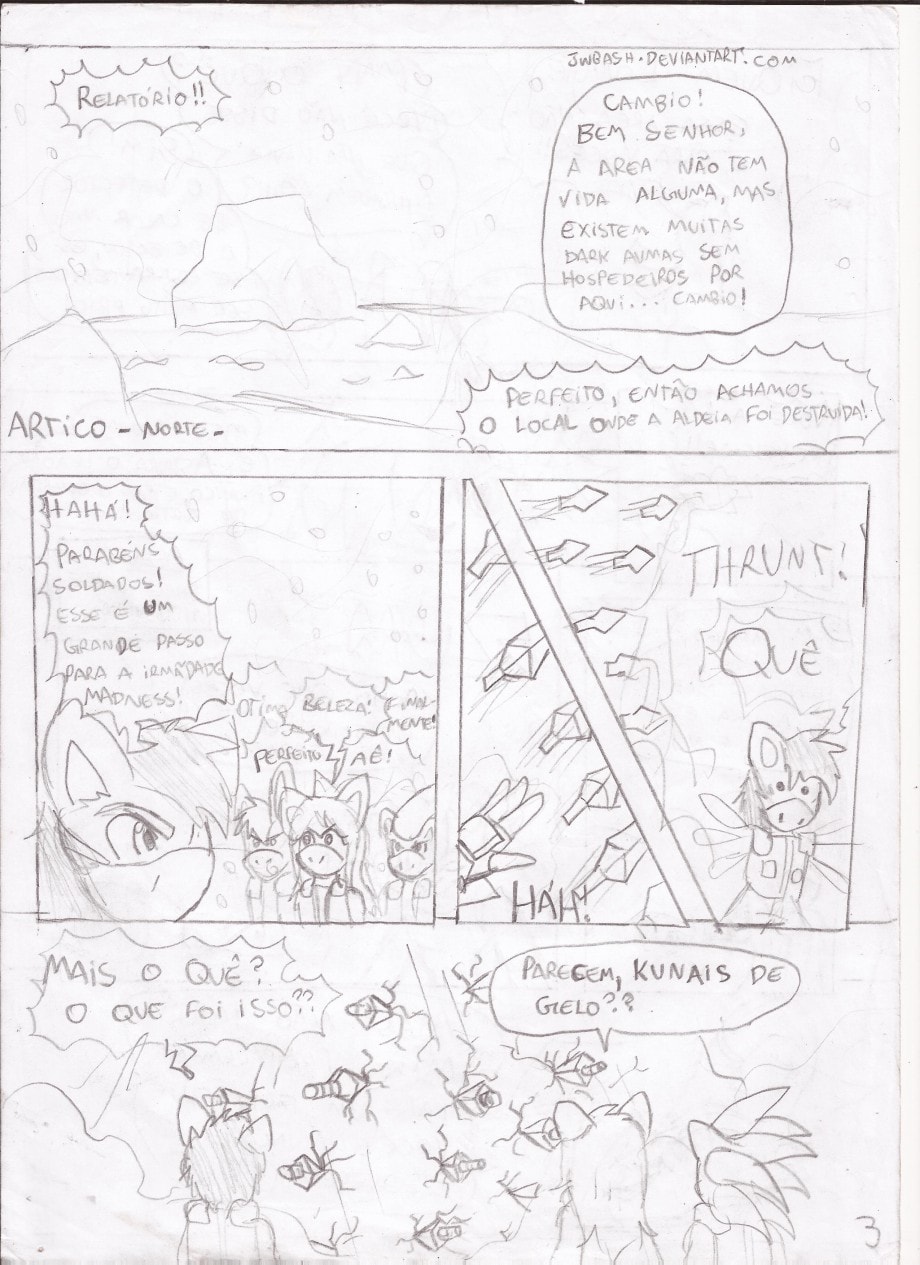 JWBASH.DEVIANTART.COM
RELATÓRIO!!
CAMBIO!
BEM SENHOR,
A AREA NÃO TEM
VIDA ALGUMA, MAS
EXISTEM MUITAS
DARK AUMAS SEM
HOSPEDEIROS POR
AQUI... CAMBIO!
PERFEITO, ENTÃO ACHAMOS
O LOCAL ONDE A ALDEIA FOI DESTRUIDA!
ARTICO - NORTE -
HAHÁ!
PARABÉNS
SOLDADOS!
ESSE É UM
GRANDE PASSO
PARA A IRMÃDADE
MADNESS!
OTIMO
BELEZA!
FINAL-
MENTE!
PERFEITO
AÊ!
THRUNT!
QUÊ
HÁH!
MAIS O QUÊ?
O QUE FOI ISSO??
PARECEM, KUNAIS DE
GELO??
3